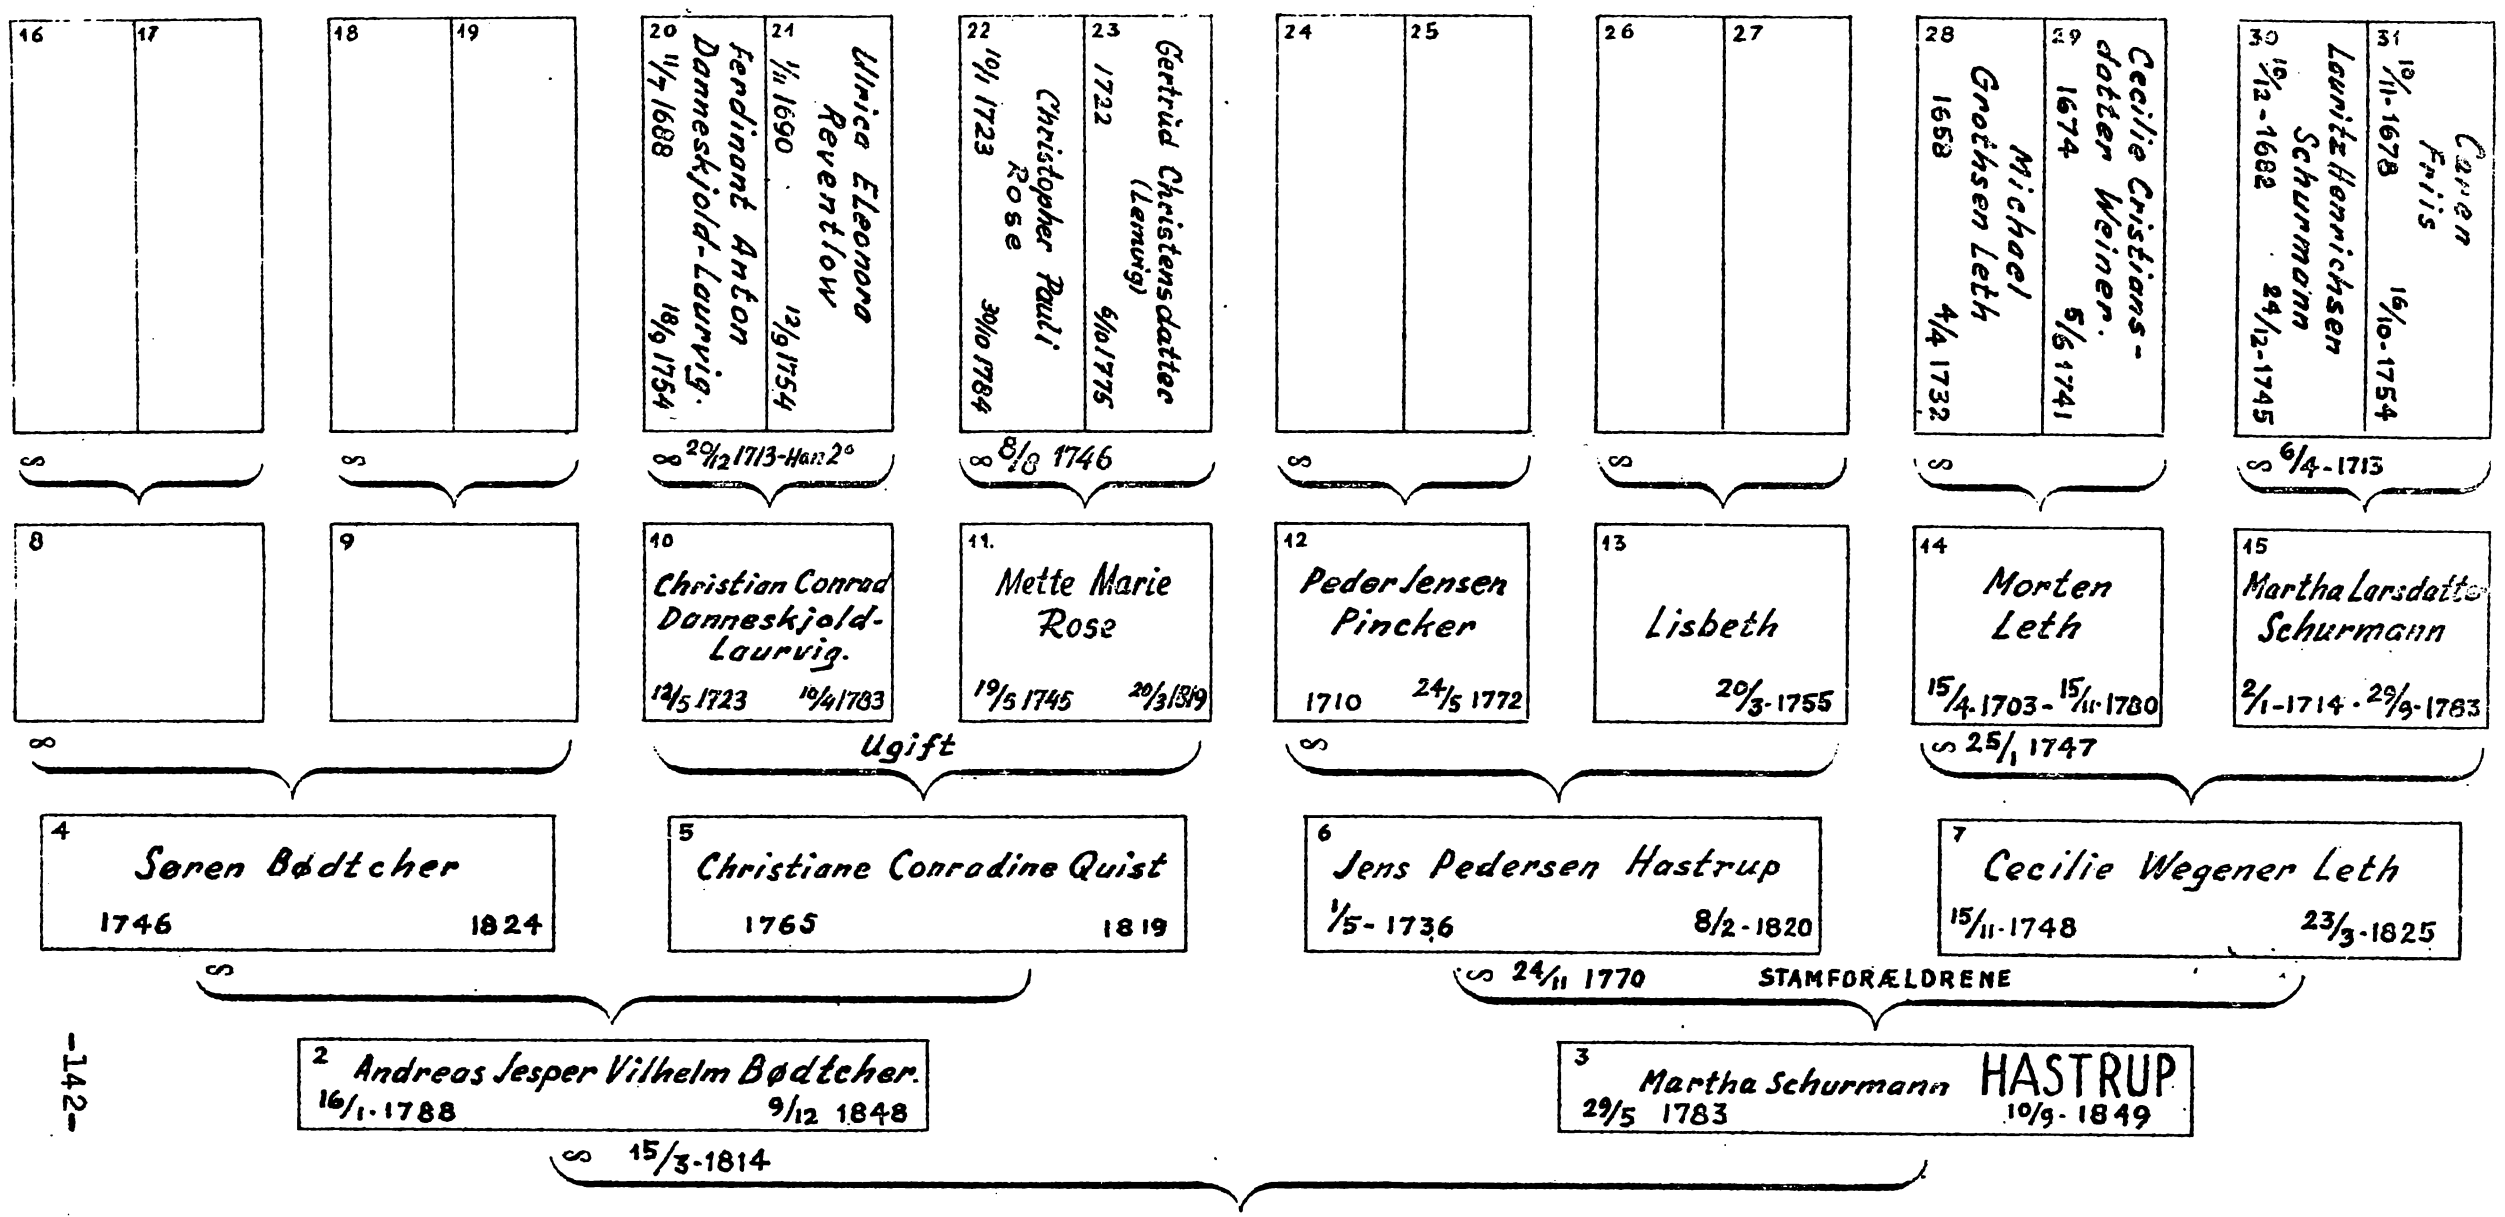 16
17
18
19
20
11/7 1688
Ferdinant Anton
Danneskjold-Laurvig.
18/9 1754
21
1/11 1690
Ulrica Eleonora
Reventlow
12/9 1754
22
10/11 1723
Christopher Pauli
Rose
30/10 1784
23
1722
Gertrüd Christensdatter
(Lemvig)
6/10 1775
24
25
26
27
28
1658
Michael
Grothsen Leth
4/4 1732
29
1674
Cecilie Cristians-
datter Weiner.
5/6 1741
30
10/12-1682
Lauritz Henrichsen
Schurmann
24/12-1745
31
10/11-1678
Caren
Friis
16/10-1754
∞
∞
∞ 20/12 1713-Han 2°
∞ 8/8 1746
∞
∞
∞
∞ 6/4-1713
8
9
10
Christian Conrad
Danneskjold-
Laurvig.
12/5 1723 10/4 1783
11.
Mette Marie
Rose
19/5 1745 20/3 1819
12
Peder Jensen
Pincker
1710 24/5 1772
13
Lisbeth
20/3-1755
14
Morten
Leth
15/4-1703- 15/11-1780
15
Martha Larsdatte
Schurmann
2/1-1714 · 29/9-1783
∞
Ugift
∞
∞ 25/1 1747
4
Søren Bødtcher
1746 1824
5
Christiane Conradine Quist
1765 1819
6
Jens Pedersen Hastrup
1/5-1736 8/2-1820
7
Cecilie Wegener Leth
15/11-1748 23/3-1825
∞
∞ 24/11 1770 STAMFORÆLDRENE
2
Andreas Jesper Vilhelm Bødtcher.
16/1-1788 9/12 1848
3
Martha Schurmann HASTRUP
29/5 1783 10/9-1849
∞ 15/3-1814
-142-